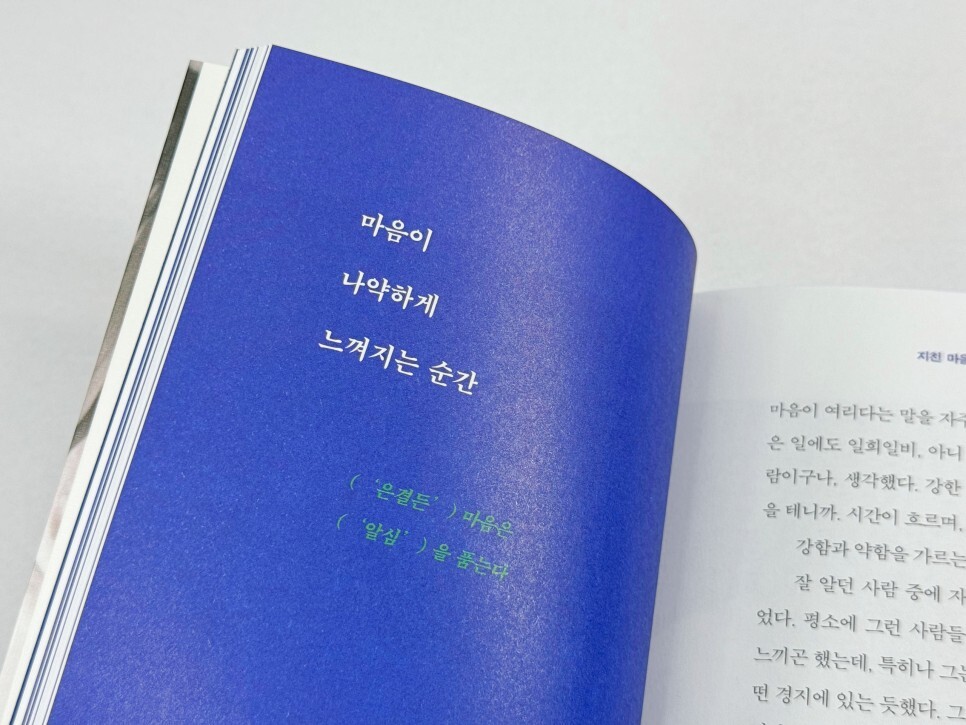 마음이
나약하게
느껴지는 순간
( ‘은결든’ ) 마음은
( ‘알심’ ) 을 품는다
지친 마음
마음이 여리다는 말을 자주
은 일에도 일희일비, 아니
람이구나, 생각했다. 강한
을 테니까. 시간이 흐르며,
강함과 약함을 가르는
잘 알던 사람 중에 자
었다. 평소에 그런 사람들
느끼곤 했는데, 특히나 그는
떤 경지에 있는 듯했다. 그